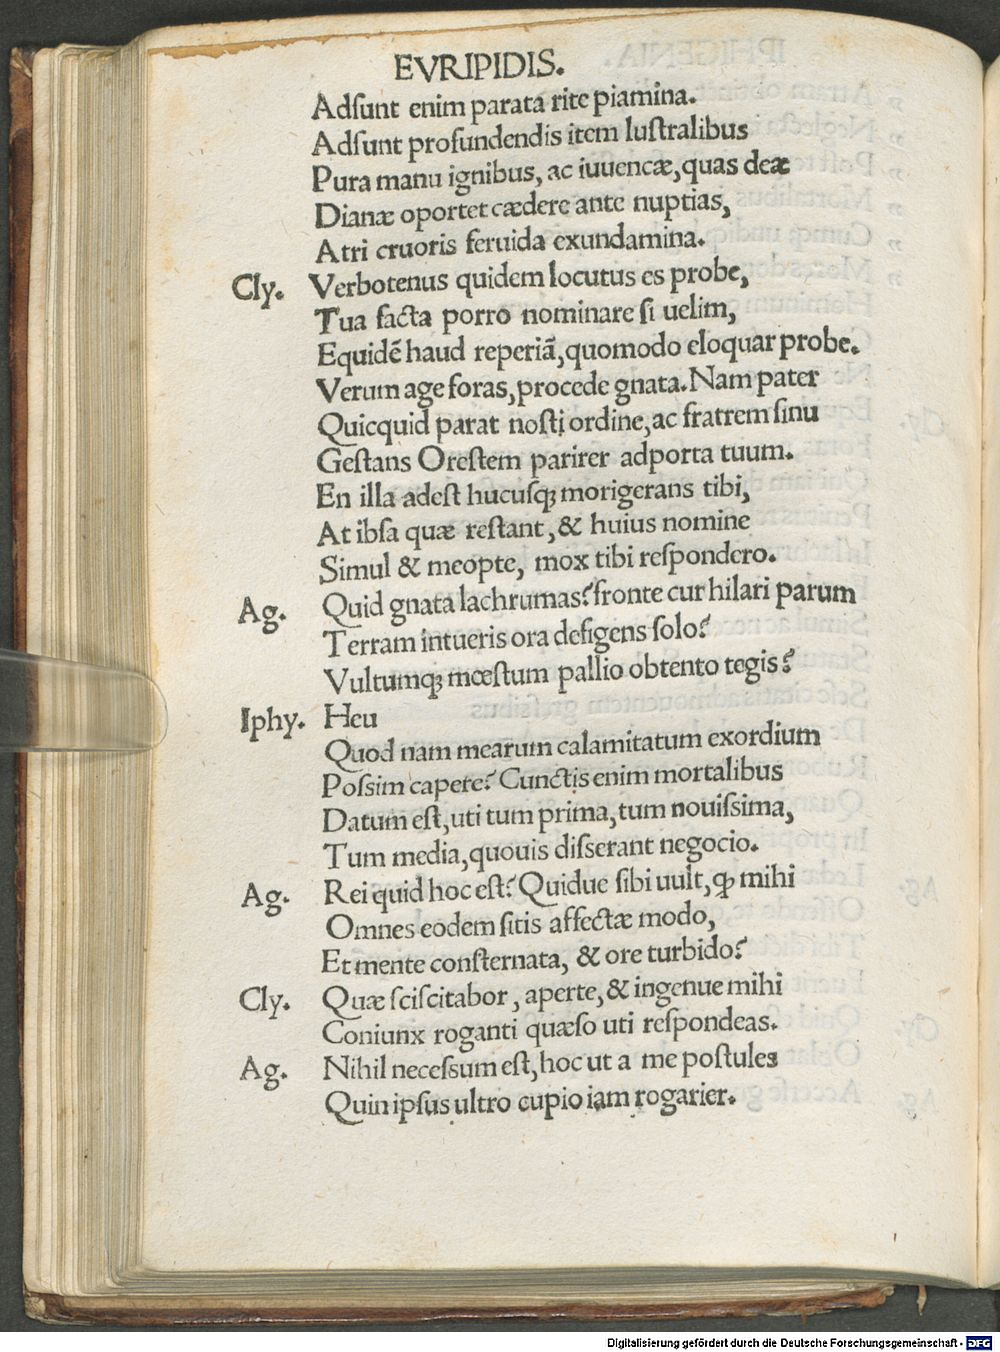 EVRIPIDIS.
Adsunt enim parata rite piamina.
Adsunt profundendis item lustralibus
Pura manu ignibus, ac iuuencæ, quas deæ
Dianæ oportet cædere ante nuptias,
Atri cruoris feruida exundamina.
Cly. Verbotenus quidem locutus es probe,
Tua facta porro nominare si uelim,
Equidē haud reperiā, quomodo eloquar probe.
Verum age foras, procede gnata. Nam pater
Quicquid parat nosti ordine, ac fratrem sinu
Gestans Orestem parirer adporta tuum.
En illa adest hucusqꝫ morigerans tibi,
At ibsa quæ restant, & huius nomine
Simul & meopte, mox tibi respondero.
Ag. Quid gnata lachrumas? fronte cur hilari parum
Terram intueris ora defigens solo?
Vultumqꝫ mœstum pallio obtento tegis?
Iphy. Heu
Quod nam mearum calamitatum exordium
Possim capere? Cunctis enim mortalibus
Datum est, uti tum prima, tum nouissima,
Tum media, quouis disserant negocio.
Ag. Rei quid hoc est? Quidue sibi uult, ꝙ mihi
Omnes eodem sitis affectæ modo,
Et mente consternata, & ore turbido?
Cly. Quæ sciscitabor, aperte, & ingenue mihi
Coniunx roganti quæso uti respondeas.
Ag. Nihil necessum est, hoc ut a me postules
Quin ipsus ultro cupio iam rogarier.
Digitalisierung gefördert durch die Deutsche Forschungsgemeinschaft - DFG